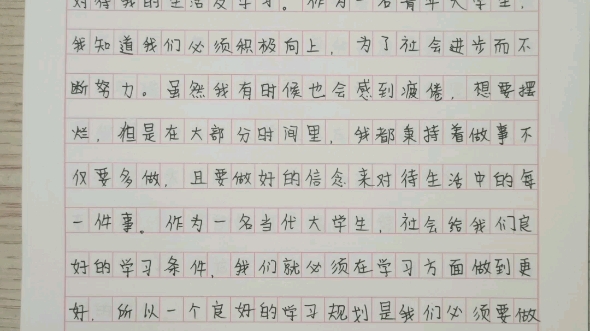 对待我的生活及学习。作为一名青年大学生，
我知道我们必须积极向上，为了社会进步而不
断努力。虽然我有时候也会感到疲倦，想要摆
烂，但是在大部分时间里，我都秉持着做事不
仅要多做，且要做好的信念来对待生活中的每
一件事。作为一名当代大学生，社会给我们良
好的学习条件，我们就必须在学习方面做到更
好，所以一个良好的学习规划是我们必须要做